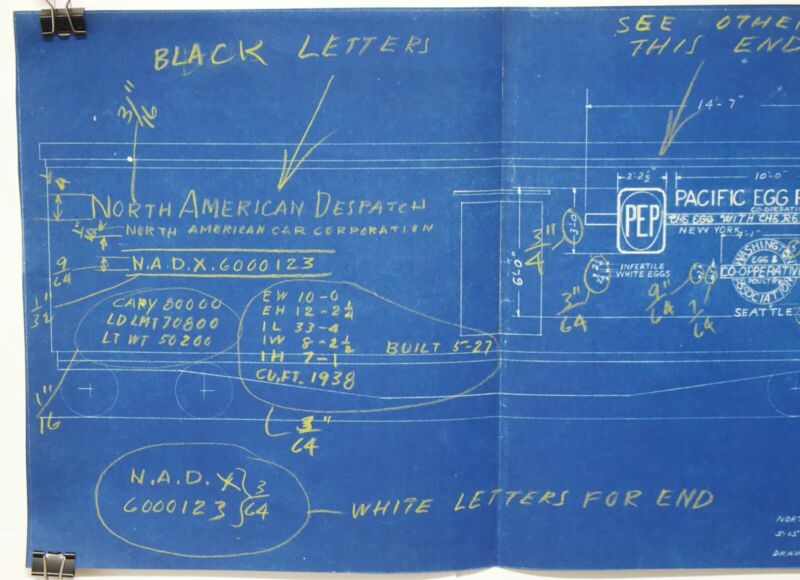 BLACK LETTERS
SEE OTHE
THIS END
3/16"
14'-7"
2'-2½"
10'-0"
NORTH AMERICAN DESPATCH
NORTH AMERICAN CAR CORPORATION
N.A.D.X. 6000123
9/64
1/32"
CAPY 80000
LD LMT 70800
LT WT 50200
EW 10-0
EH 12-2¼
IL 33-4
IW 8-2½
IH 7-1
CU.FT. 1938
BUILT 5-27
1"/16
3"/64
6'-0"
3"/4
3'-0"
PEP
PACIFIC EGG P
CO-OPERATI
THE EGG WITH THE RE
NEW YORK
4'-1"
INFERTILE
WHITE EGGS
3"/64
9"/64
7/64
WASHING
EGG &
CO-OPERATIVE
POULTRY
ASSOCIATION
SEATTLE
N.A.D.X
6000123
3/64
WHITE LETTERS FOR END
NORT
5-15
DRAW